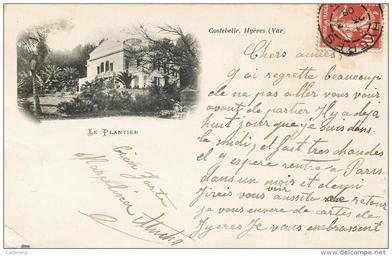 Costebelle, Hyères (Var)
LE PLANTIER
Chers amies
J ai regretté beaucoup
de ne pas aller vous voir
avant de partier Il y a deja
huit jour que je suis dans
le midi, il fait tres chaudes
et y espere rentre a Paris
dans un mois et
Jirais vous voir aussito retour
je vous envore de cartes de
Hyeres Je vous embrassent
bien forte
© Cartesmz
delcampe.net